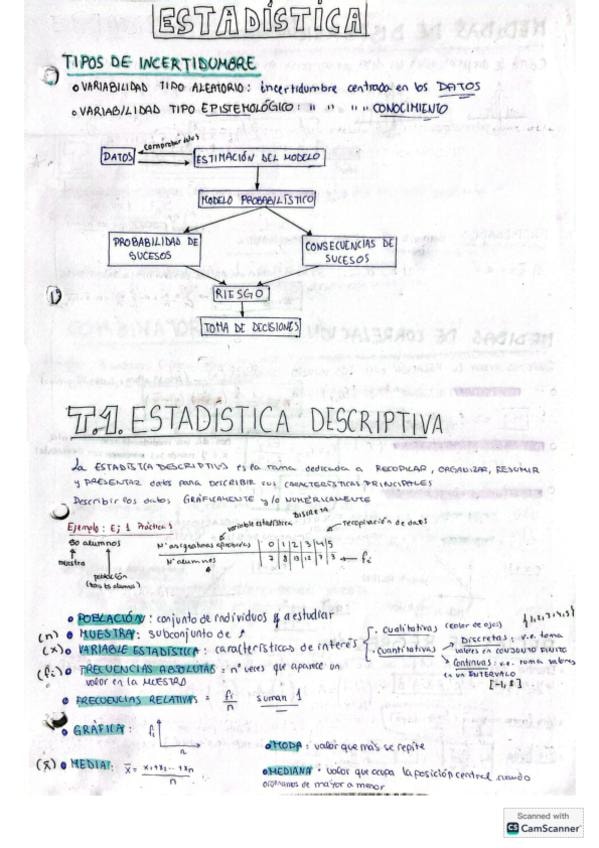 ESTADÍSTICA
TIPOS DE INCERTIDUMBRE
VARIABILIDAD TIPO ALEATORIO: incertidumbre centrada en los DATOS
VARIABILIDAD TIPO EPISTEMOLÓGICO: " " " " CONOCIMIENTO
DATOS comprobar ESTIMACIÓN DEL MODELO
MODELO PROBABILÍSTICO
PROBABILIDAD DE SUCESOS
CONSECUENCIAS DE SUCESOS
RIESGO
TOMA DE DECISIONES
T.1. ESTADISTICA DESCRIPTIVA
La ESTADÍSTICA DESCRIPTIVA es la rama dedicada a RECOPILAR, ORGANIZAR, RESUMIR
y PRESENTAR datos para DESCRIBIR sus CARACTERÍSTICAS PRINCIPALES
Describir los datos GRÁFICAMENTE y/o NUMÉRICAMENTE
DISCRETA
Ejemplo: Ej 1 Prácticas variable estadística recopilación de datos
50 alumnos
Nº asignaturas aprobadas | 0 | 1 | 2 | 3 | 4 | 5
Nº alumnos | 7 | 8 | 13 | 12 | 7 | 3 ← fi
muestra
población
POBLACIÓN: conjunto de individuos a estudiar
(n) MUESTRA: subconjunto de
(x) VARIABLE ESTADÍSTICA: características de interés
cualitativas (color de ojos)
cuantitativas
Discretas: v.e. toma
valores en CONJUNTO FINITO
Continuas: v.e. toma valores
en un INTERVALO
(fi) FRECUENCIAS ABSOLUTAS: nº veces que aparece un
valor en la MUESTRA
FRECUENCIAS RELATIVAS = fi/n suman 1
GRÁFICA: fi
n
MODA: valor que más se repite
(x̄) MEDIA: x̄ = x1+x2...+xn/n
MEDIANA: valor que ocupa la posición central cuando
ordenamos de mayor a menor
Scanned with
CS CamScanner